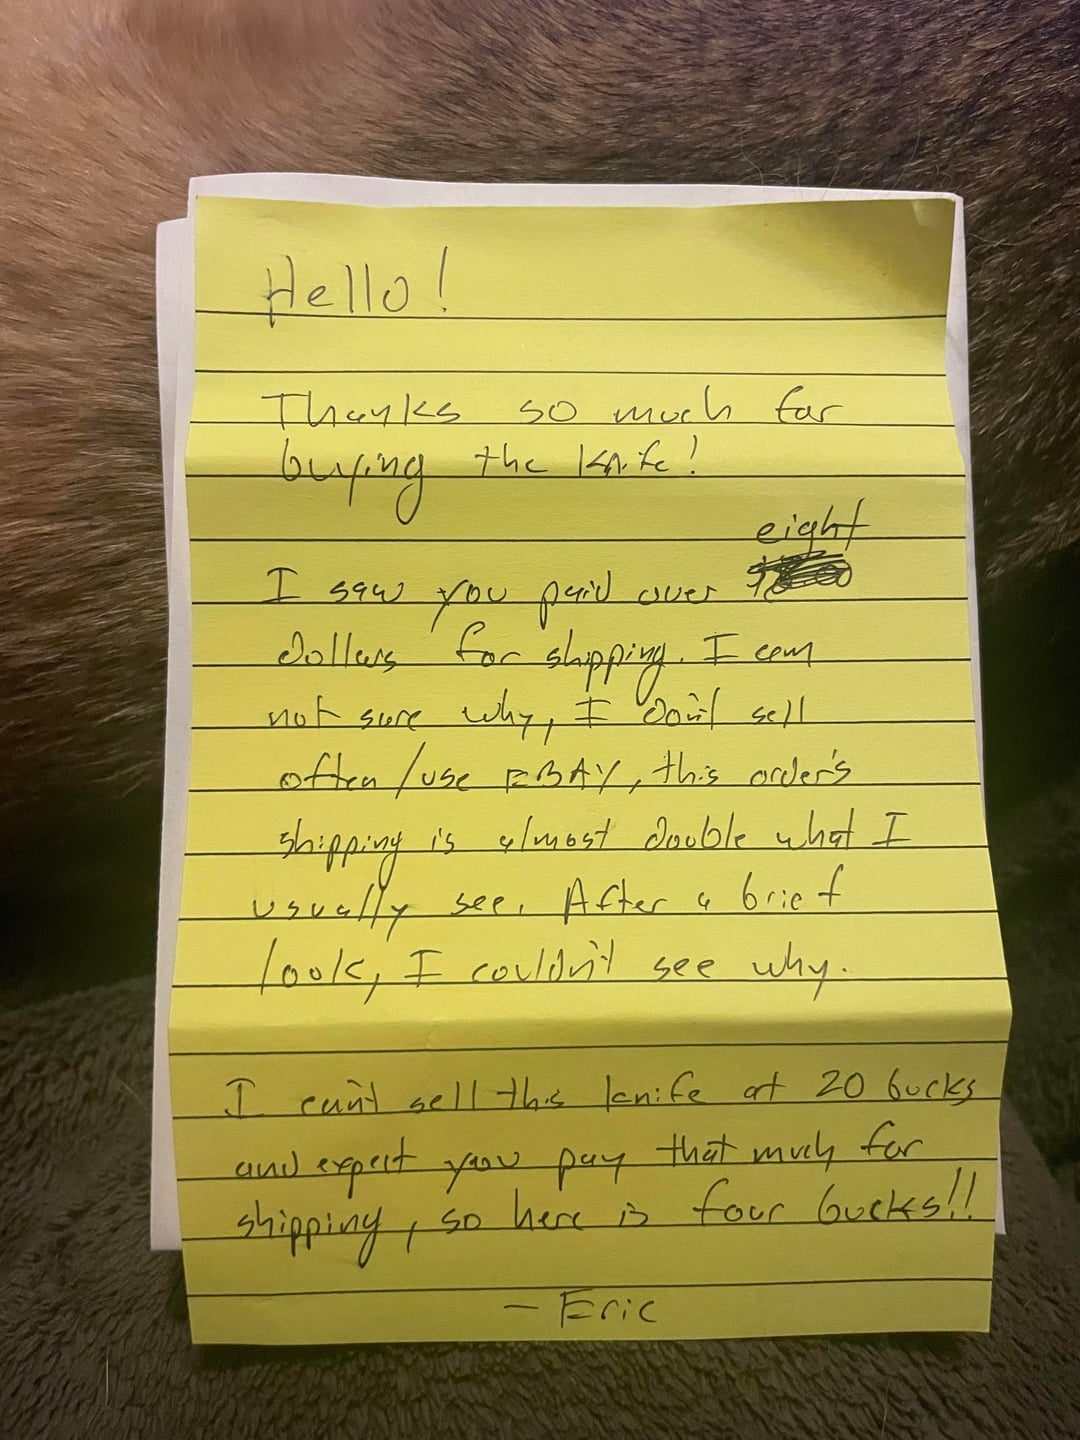 Hello!
Thanks so much for
buying the knife!
eight
I saw you paid over
dollars for shipping. I am
not sure why, I don't sell
often/use EBAY, this order's
shipping is almost double what I
usually see. After a brief
look, I couldn't see why.
I can't sell this knife at 20 bucks
and expect you pay that much for
shipping, so here is four bucks!!
- Eric